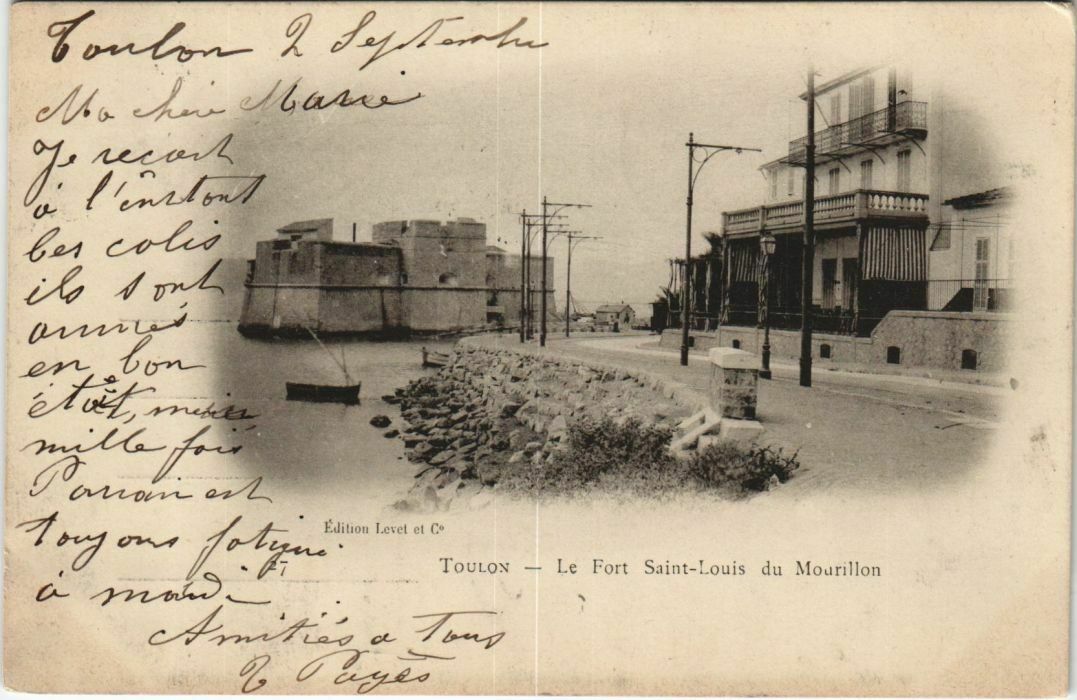 Toulon 2 Septembre
Ma chère Marie
Je reçoit
à l'instant
les colis
ils sont
arrivés
en bon
état, merci
mille fois
Parrain est
toujours fatigué
à mardi
Amitiés a Tous
Édition Levet et Cº
27
TOULON — Le Fort Saint-Louis du Mourillon